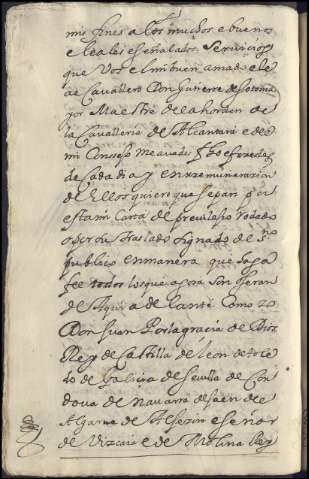 mis fines a los muchos e buenos
e leales e señalados servicios
que Vos el mi buen amado e le
al Cavallero Don Gutierre de Sotomai
por Maestre de la horden de
la Cavalleria de Alcantara e de
mi Consejo me avedes fho e fazedes
de cada dia y en remuneracion
de ellos quiero que sepan por
esta mi Carta de previlejio rodado
o por su traslado signado de sno
publico en manera que faga
fee todos los que aora son o seran
de aqui adelante Como yo
Don Juan Por la gracia de Dios
Rey de Castilla de Leon de tole
do de Galicia de Sevilla de Cor
dova de Navarra de Jaen de
Algarve de Algezira e Señor
de Vizcaia e de Molina Rey